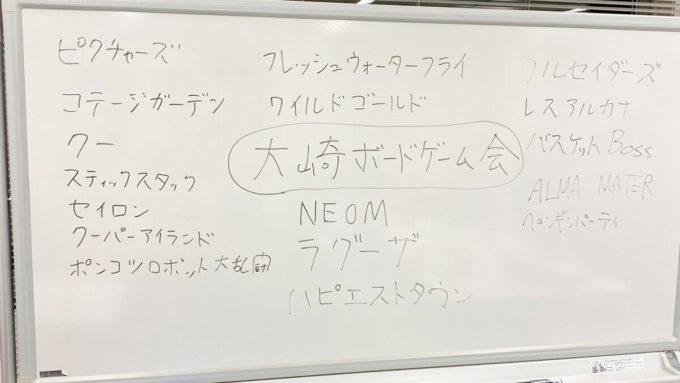 ピクチャーズ
コテージガーデン
クー
スティックスタック
セイロン
クーパーアイランド
ポンコツロボット大乱闘
フレッシュウォーターフライ
ワイルドゴールド
大崎ボードゲーム会
NEOM
ラグーザ
ハピエストタウン
フルセイダーズ
レスアルカナ
バスケットBoss
ALMA MATER
ペンギンパーティ